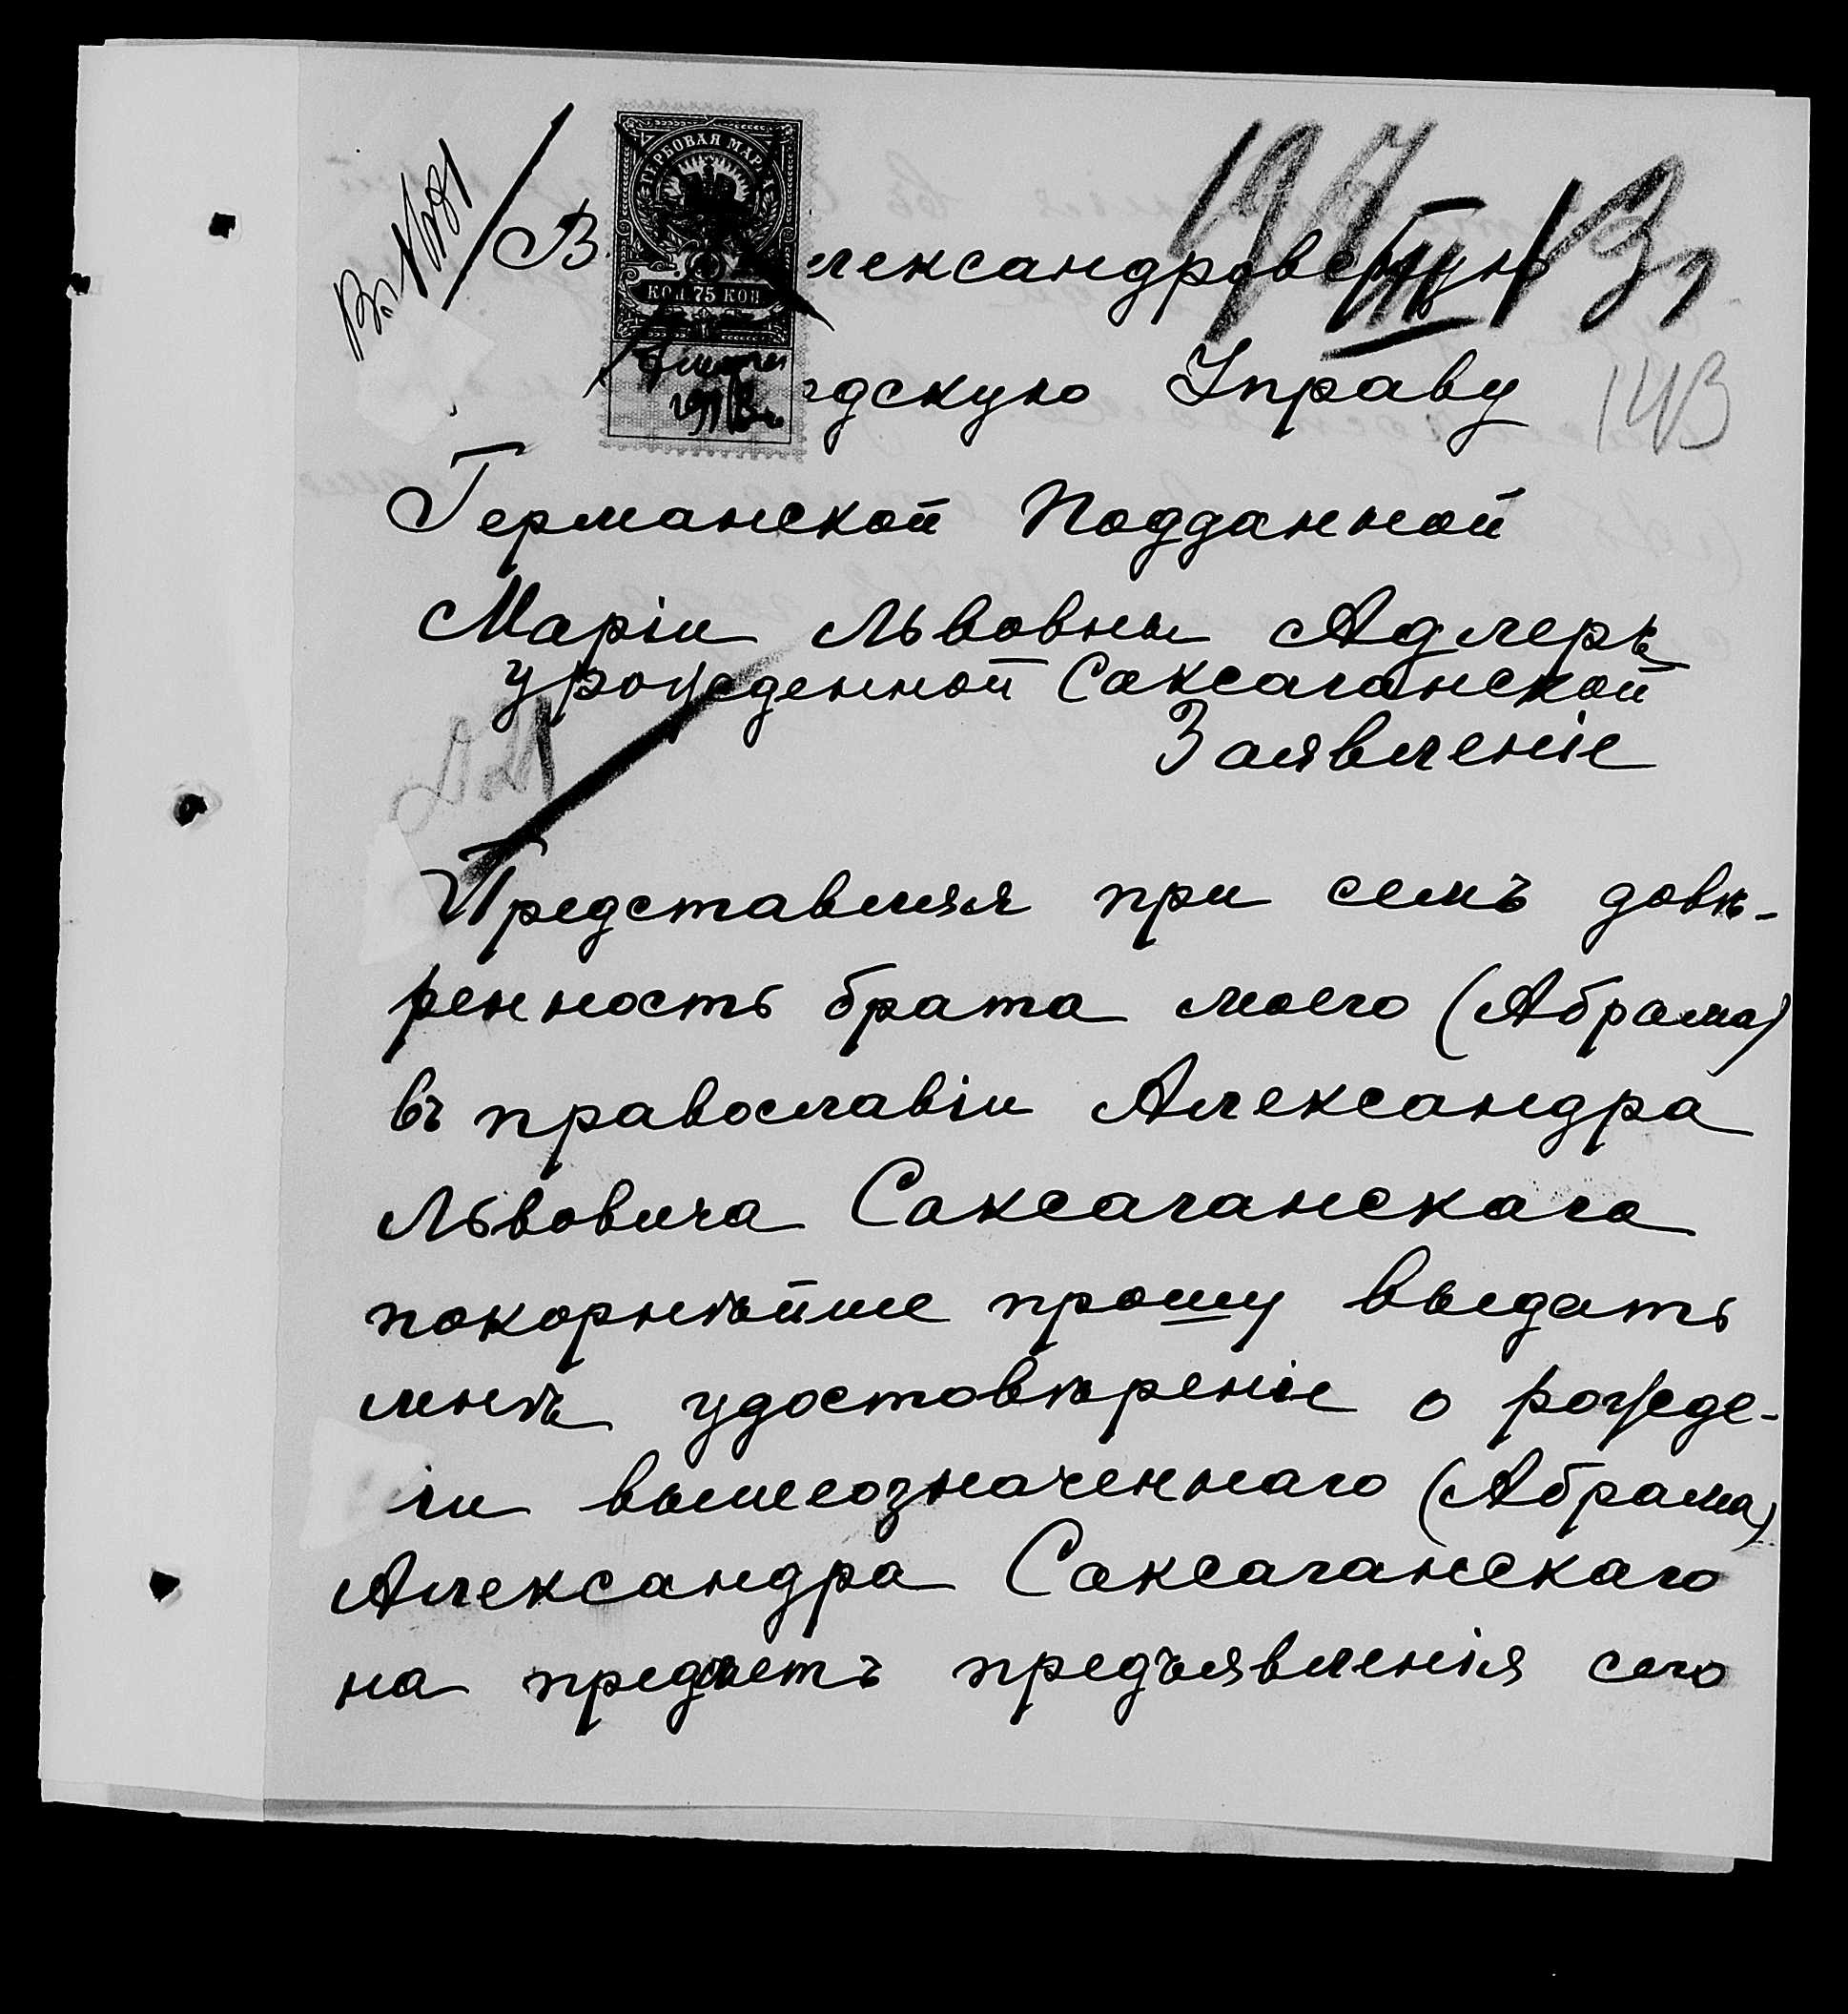 ГЕРБОВАЯ МАРКА
КОП. 75 КОП.
1913 г.
В лександровскую
дскую Управу
143
Германской Подданной
Маріи Львовны Адлеръ
урожденной Саксаганской
Заявленіе
Представляя при семъ довѣ-
ренность брата моего (Абрама)
въ православіи Александра
Львовича Саксаганскаго
покорнѣйше прошу выдать
мнѣ удостовѣреніе о рожде-
ніи вышеозначеннаго (Абрама)
Александра Саксаганскаго
на предметъ предъявленія сего